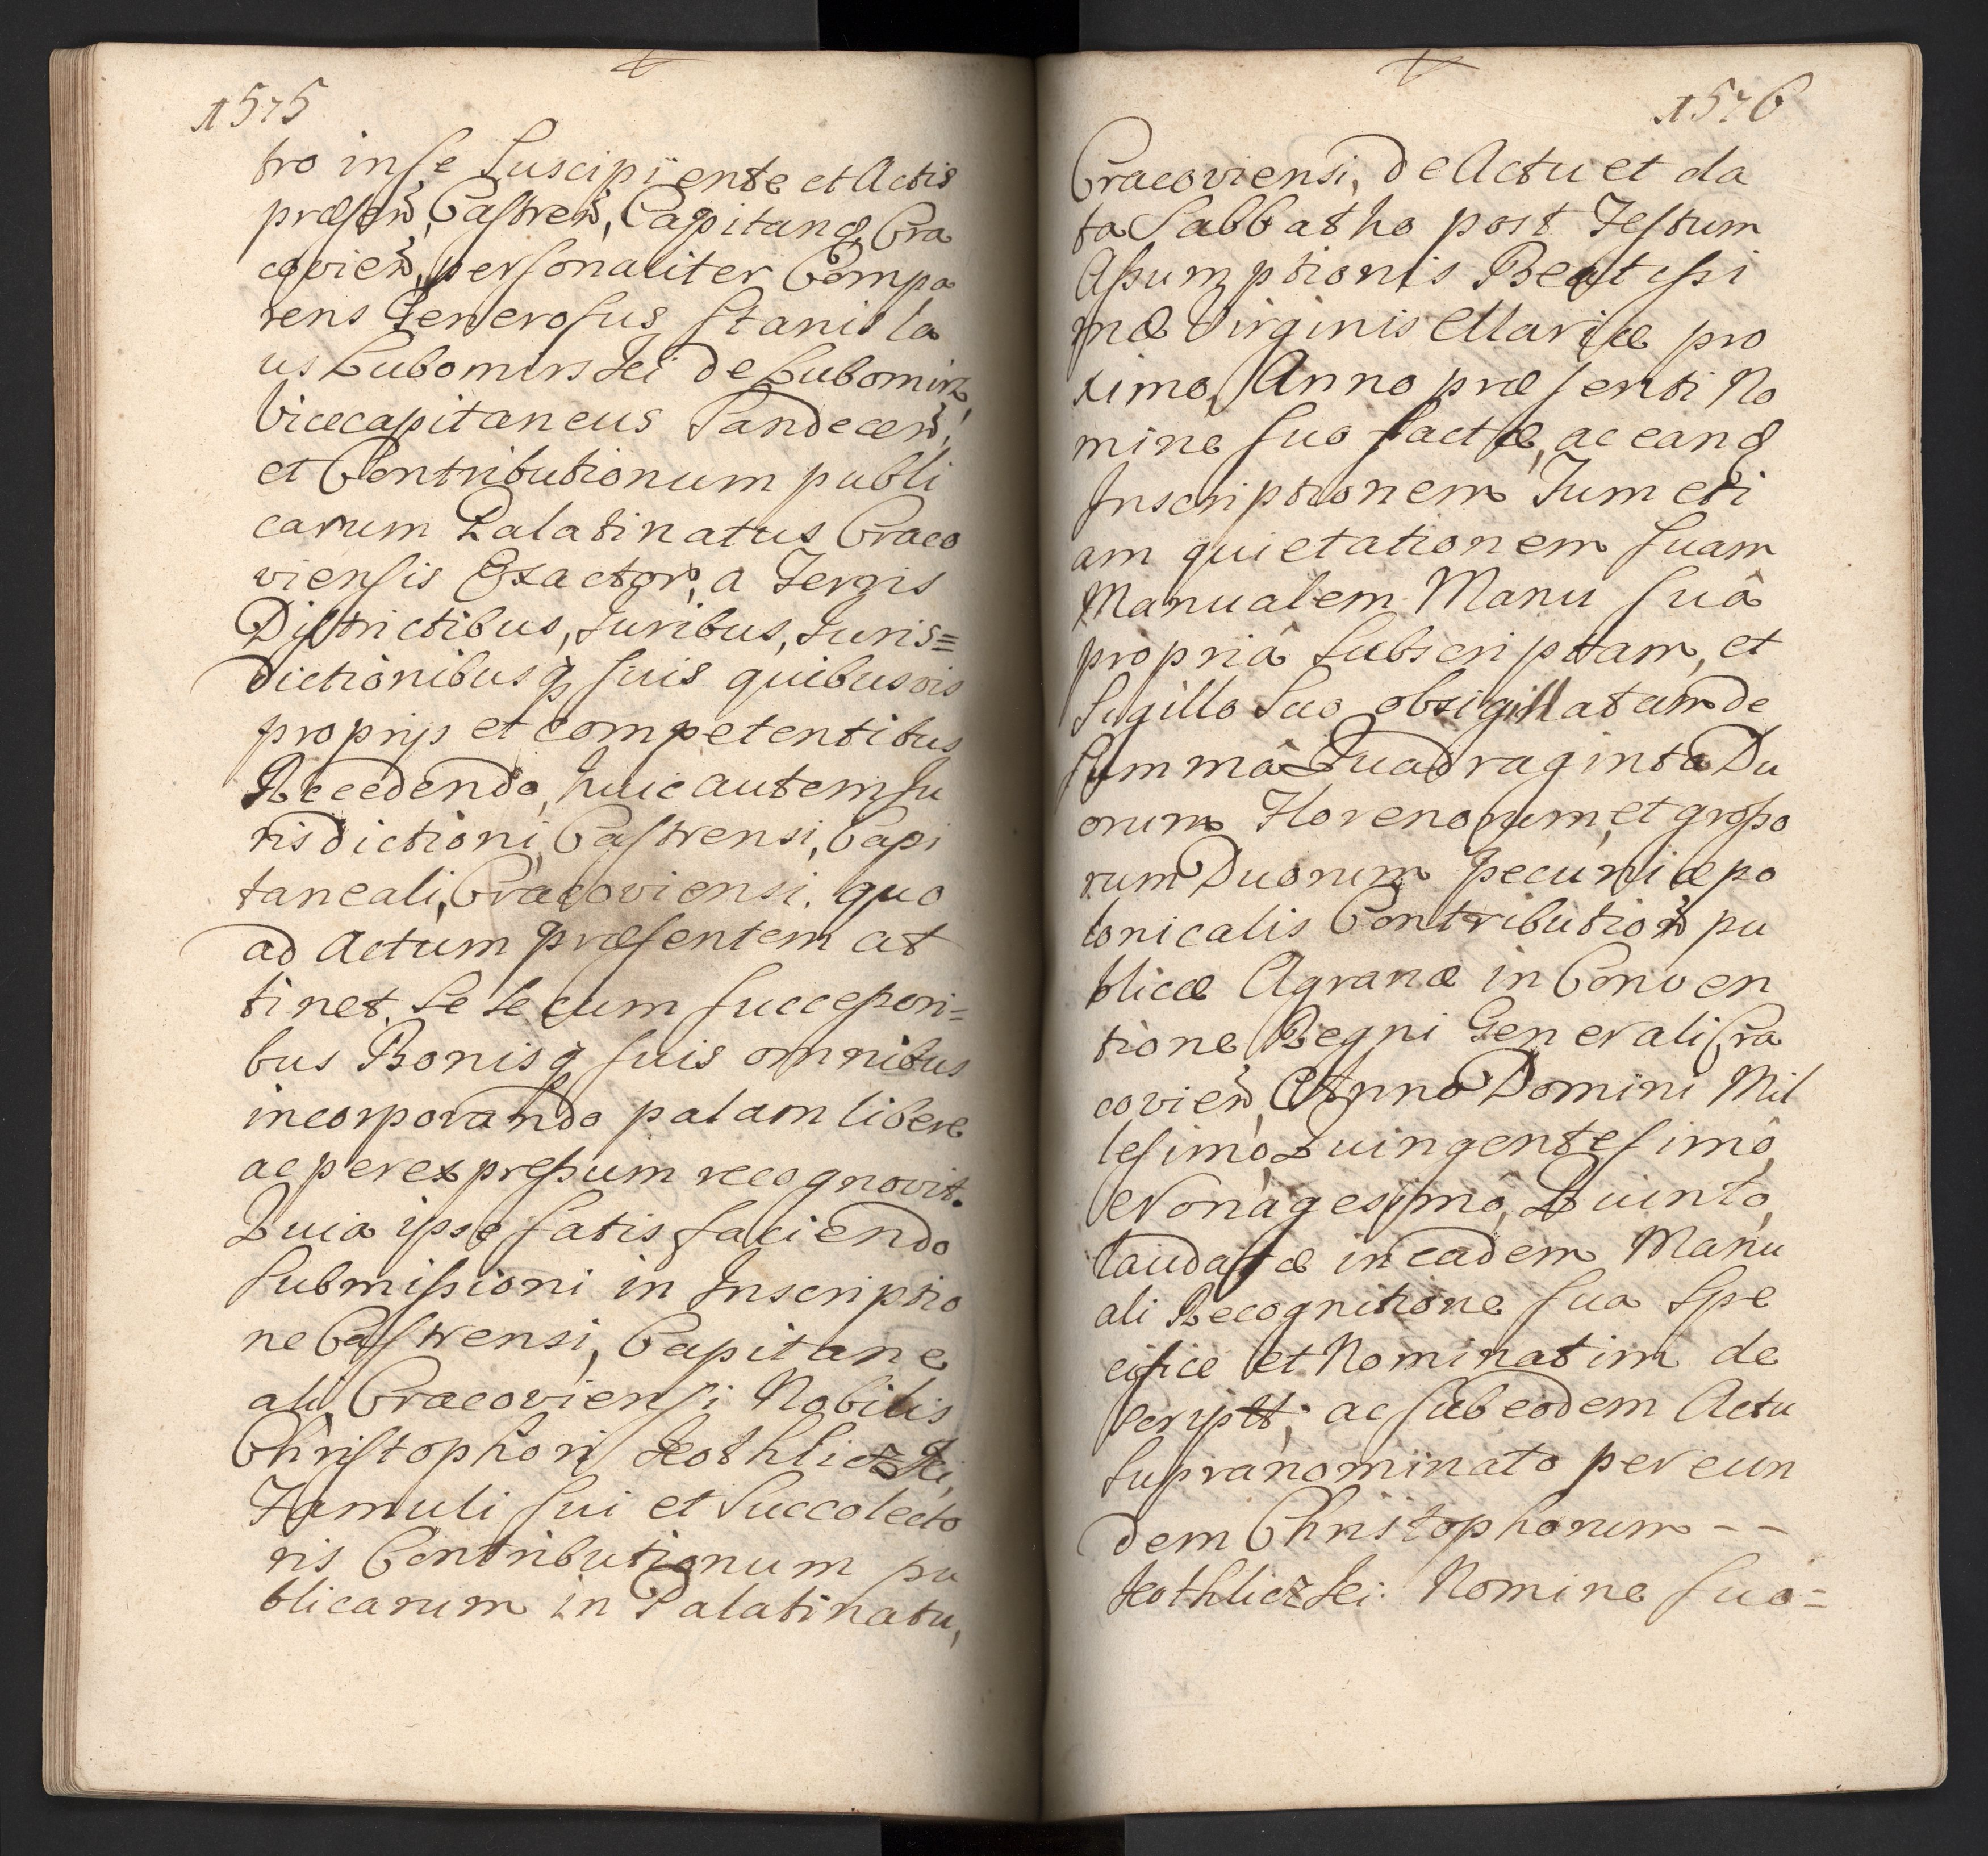 1575
tro in se Suscipiente et Actis
præsen, Castren, Capitanq, Cra
covien, personaliter Compa
rens Generosus Stanisla
us Lubomirski de Lubomirz,
Vicecapitaneus Sandecen,
et Contributionum publi
carum Palatinatus Craco
viensis Exactor, a Terris
Districtibus, Juribus, Juris=
dictionibusq suis quibusvis
proprijs et competentibus
Recedendo, huic autem Ju
risdictioni, Castrensi, Capi
taneali, Cracoviensi. quo
ad Actum præsentem at
tinet. Se Se cum Successori=
bus Bonisq suis omnibus
incorporando palam libere
ac per expressum recognovit.
Quia ipse satisfaciendo
Submissioni in Inscriptio
ne Castrensi, Capitane
ali, Cracoviensi Nobilis
Christophori Kothliczki,
Famuli sui et Succolecto
ris Contributionum pu
blicarum in Palatinatu,
1576
Cracoviensi, de Actu et da
ta Sabbatho post Festum
Assumptionis Beatissi
mæ Virginis Mariæ pro
ximo, Anno præsenti No
mine suo factæ, ac eanq
Inscriptionem Tum eti
am quietationem suam
Manualem Manu suâ
propriâ Subscriptam, et
Sigillo Suo obsigillatam de
Summâ Quadraginta Du
orum Florenorum, et grosso
rum Duorum pecuniæ po
lonicalis Contribution pu
blicæ Agrariæ in Conven
tione Regni Generali Cra
covien, Anno Domini Mil
lesimo, Quingentesimô,
Nonagesimô, Quinto,
laudatæ in eadem Manu
ali Recognitione sua Spe
cifice et Nominatim de
script, ac sub eodem Actu
Supranominato per eun
dem Christophorum - -
Kothliczki Nomine suo=